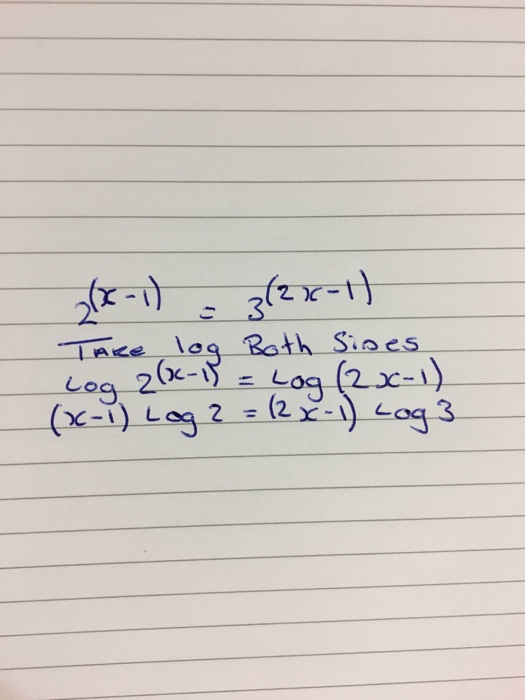 2^(x-1) = 3^(2x-1)
Take log Both Sides
Log 2^(x-1) = Log (2x-1)
(x-1) Log 2 = (2x-1) Log 3